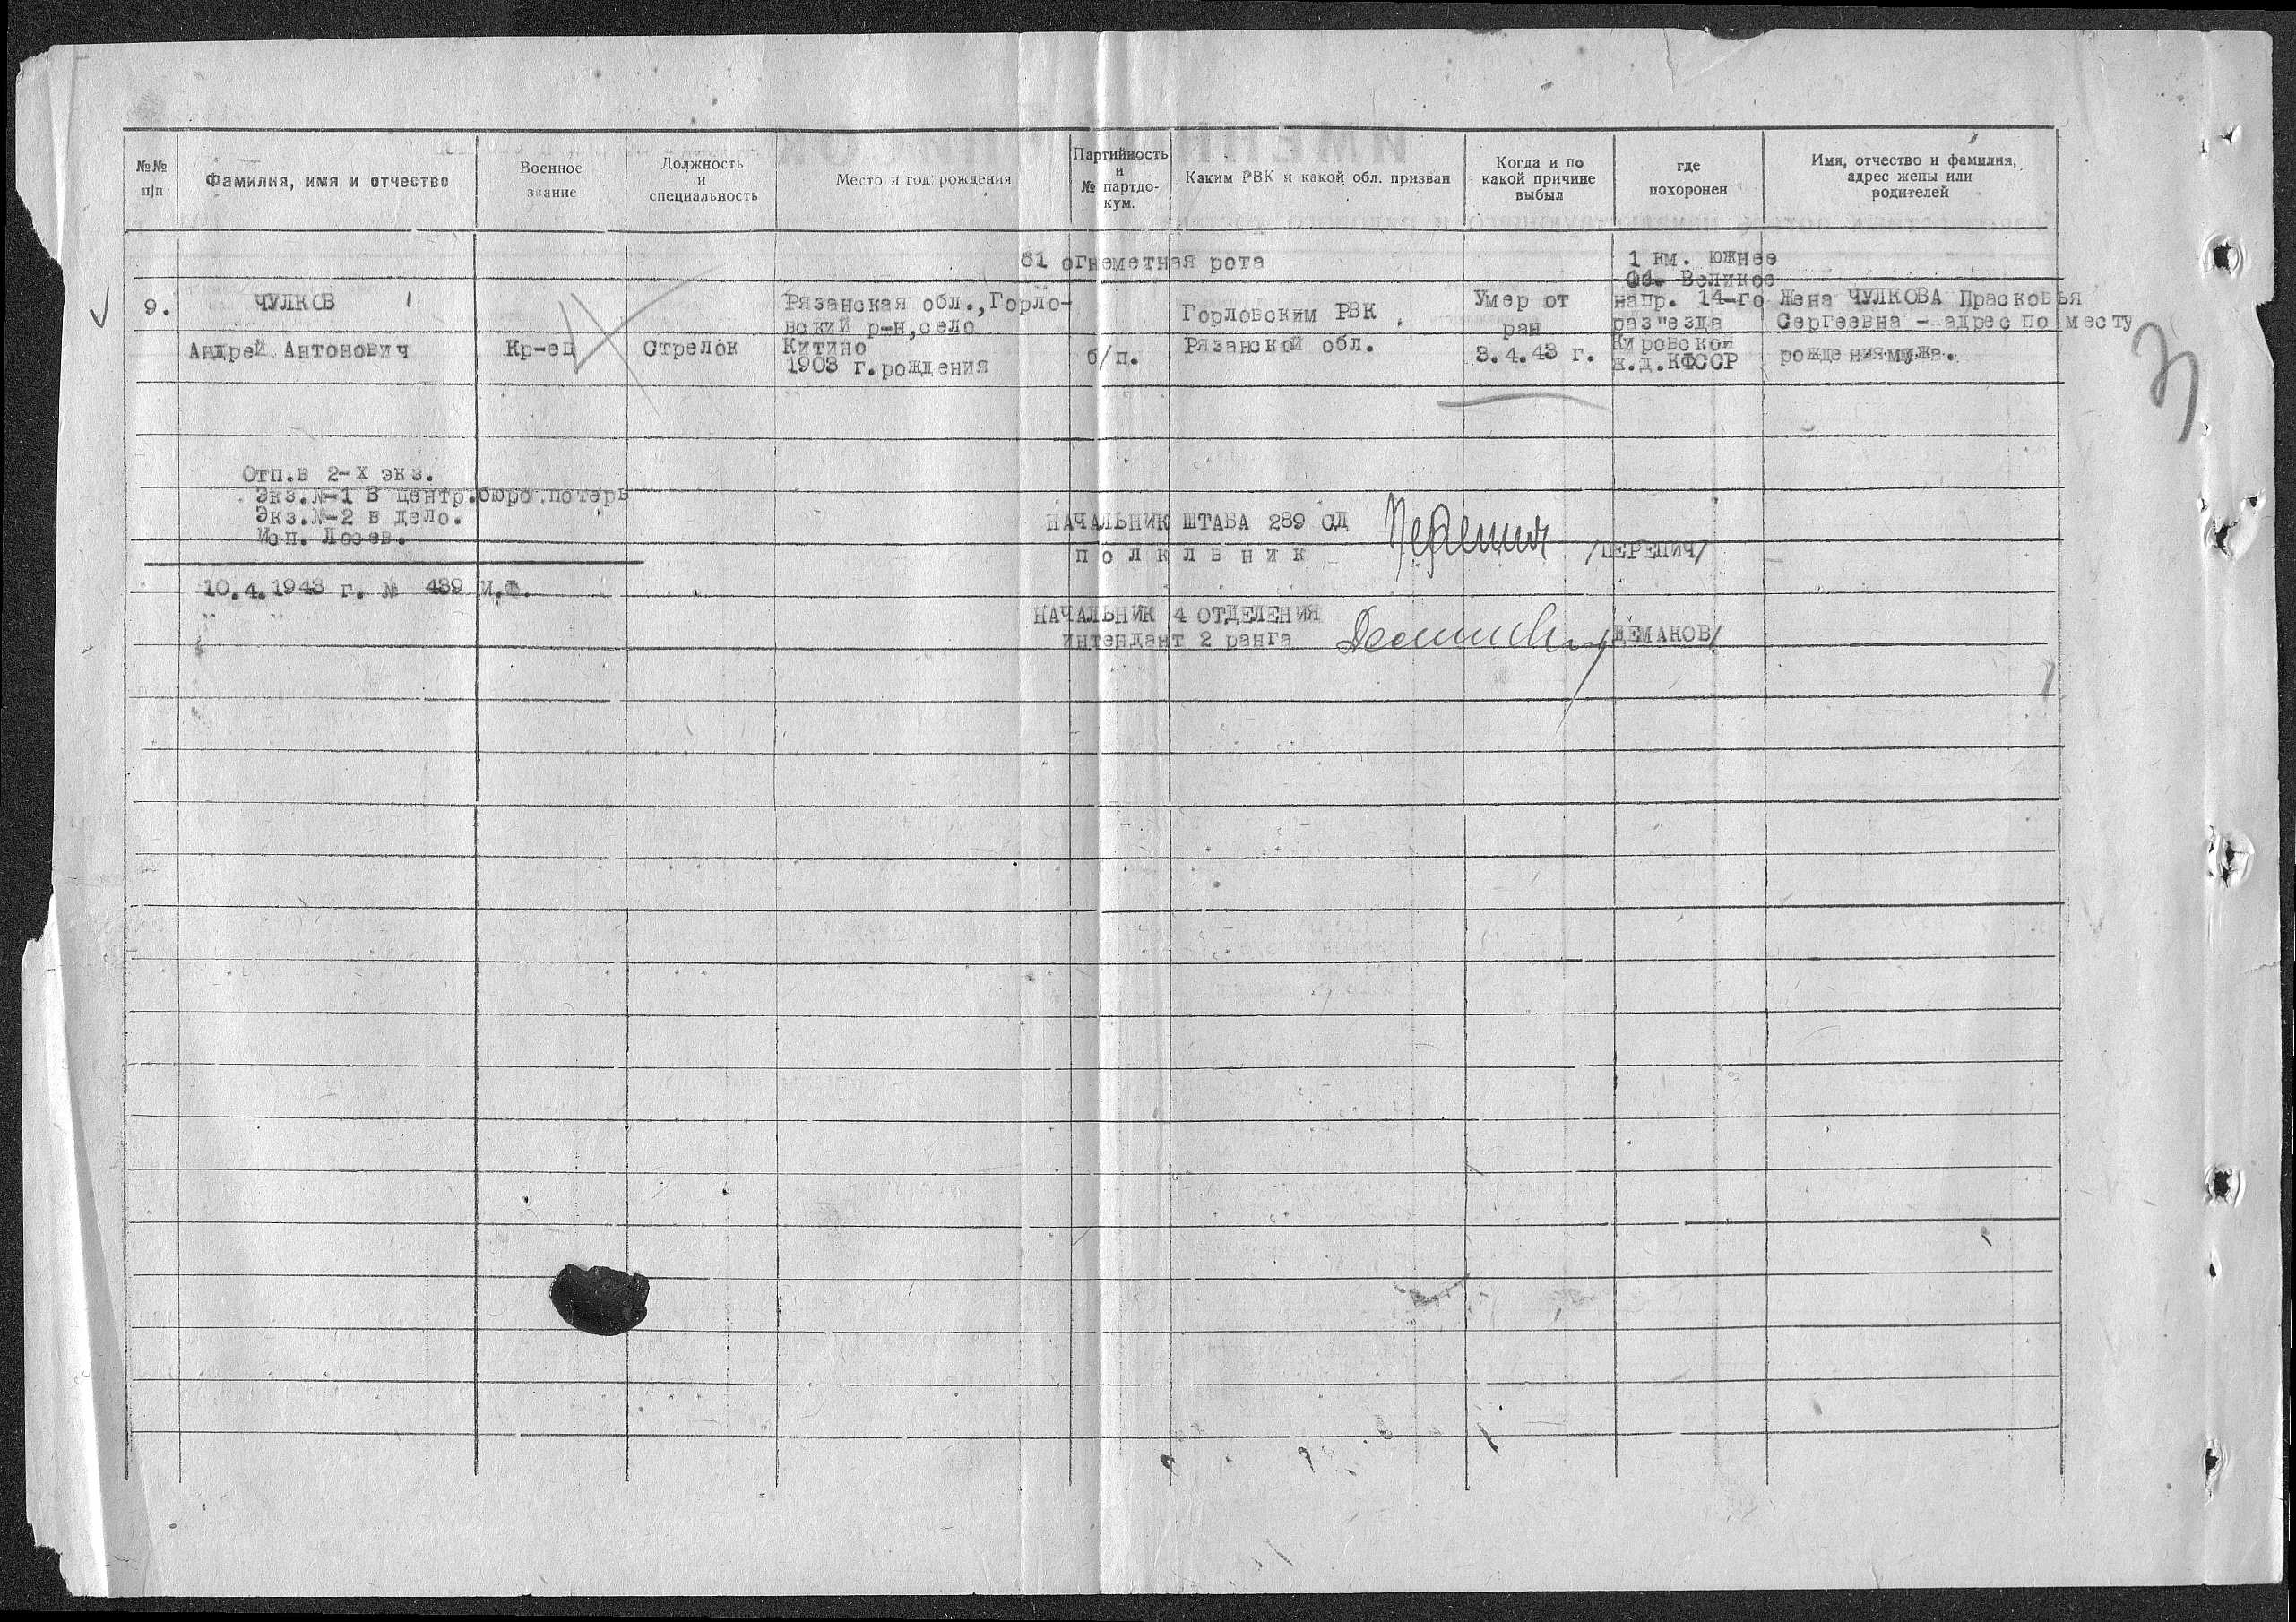 №№ п/п
Фамилия, имя и отчество
Военное звание
Должность и специальность
Место и год рождения
Партийность и № партдокум.
Каким РВК и какой обл. призван
Когда и по какой причине выбыл
где похоронен
Имя, отчество и фамилия, адрес жены или родителей
61 огнеметная рота
9.
ЧУЛКОВ
Андрей Антонович
Кр-ец
Стрелок
Рязанская обл., Горло-
вский р-н, село
Китино
1903 г. рождения
б/п.
Горловским РВК
Рязанской обл.
Умер от
ран
3.4.43 г.
1 км. южнее
Великое
напр. 14-го
раз"езда
Кировской
ж.д. КФССР
Жена ЧУЛКОВА Прасковья
Сергеевна - адрес по месту
рождения мужа.
3
Отп.в 2-х экз.
Экз.№-1 В центр.бюро.потерь
Экз.№-2 в дело.
Исп. Лозев.
10.4.1943 г. № 439 И.Ф.
НАЧАЛЬНИК ШТАБА 289 СД
ПОЛКЛВНИК
/ПЕРЕПИЧ/
НАЧАЛЬНИК 4 ОТДЕЛЕНИЯ
интендант 2 ранга
/ДЕМАКОВ/